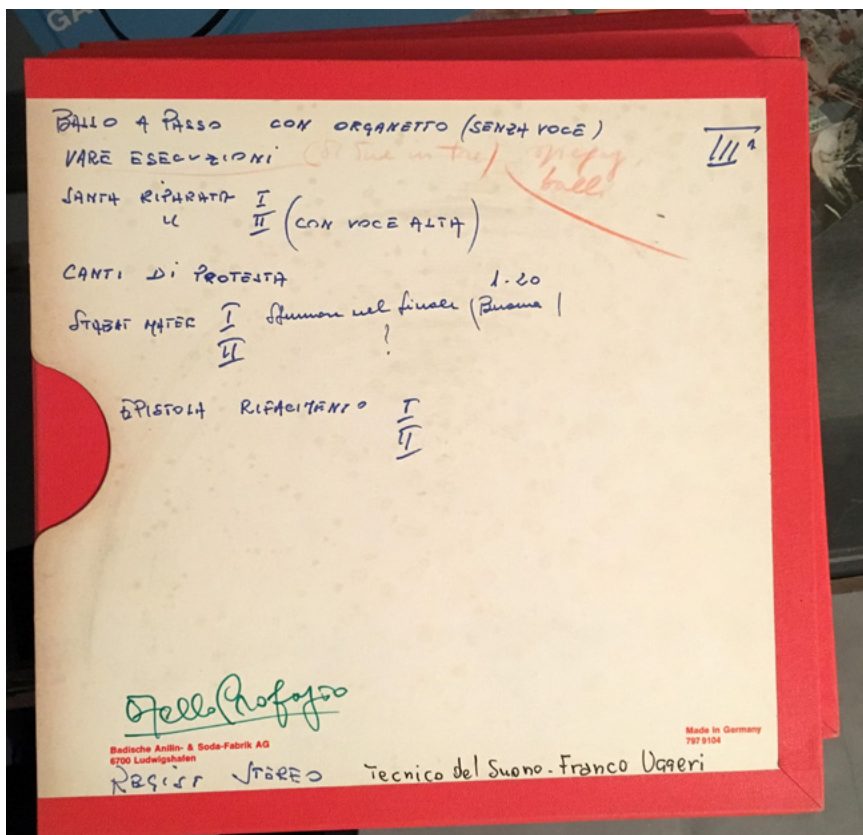 GA
BALLO A PASSO CON ORGANETTO (SENZA VOCE)
III ª
VARE ESECUZIONI
balli
SANTA RIPARATA I
" II (CON VOCE ALTA)
CANTI DI PROTESTA
1-20
STABAT MATER I Sfumare nel finale (Buona)
?
II
EPISTOLA RIFACIMENTO I
II
Otello Profazio
Badische Anilin- & Soda-Fabrik AG
6700 Ludwigshafen
Made in Germany
797 9104
REGIST STEREO Tecnico del Suono - Franco Uggeri